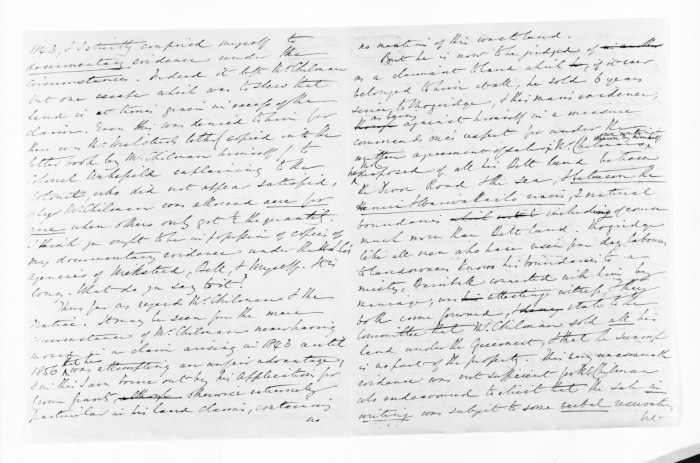 1843, I strictly confined myself to
documentary evidence under the
circumstances. Indeed it left Mr. Chilman
but one escape which was to shew that
land is at times given in excess of the
claim. Even this was denied to him for
there was Mr. Wicksteed's letter (copied into the
letter book by Mr. Chilman himself,) to
Colonel Wakefield explaining to the
Colonist, who did not appear satisfied,
why Mr. Chilman was allowed acre for
acre when others only got ¼ the quantity.
I think you ought to be in possession of copies of
my documentary evidence under the
agencies of Wicksteed, Bell, & Myself. It is
long. What do you say to it?
Thus far as regards Mr. Chilman & the
Native. It may be seen for the mere
circumstance of Mr. Chilman never having
moved in a claim arising in 1843 until
1856 that he was attempting an unfair advantage,
& in this I am borne out by his applications for
Crown grants, otherwise extremely
particular in his land claims, containing
no
no mention of this waste land.
But he is now to be judged of
as a claimant to land which, if it ever
belonged to him at all, he sold 6 years
since, to Thorpridge, & this man's evidence,
as being against himself in a measure
commands one's respect for under the
written agreement of sale Mr. Chilman
disposed of all his Belt land between
the Devon Road & the sea, & between the
Henui & Waiwakaiho rivers, 2 natural
boundaries including of course
much more than Belt land. Thorpridge
like all men who have risen from day labourers
to landowners knows his boundaries to a
nicety, connected with him by
marriage, was attesting witness, & they
both come forward, & state to the
Committee that Mr. Chilman sold all his
land under the Agreement, & that the swamp
is no part of the property. This being unanswerable
evidence was not sufficient for Mr. Chilman
who endeavoured to elicit that the sale in
writing was subject to some verbal reservation,